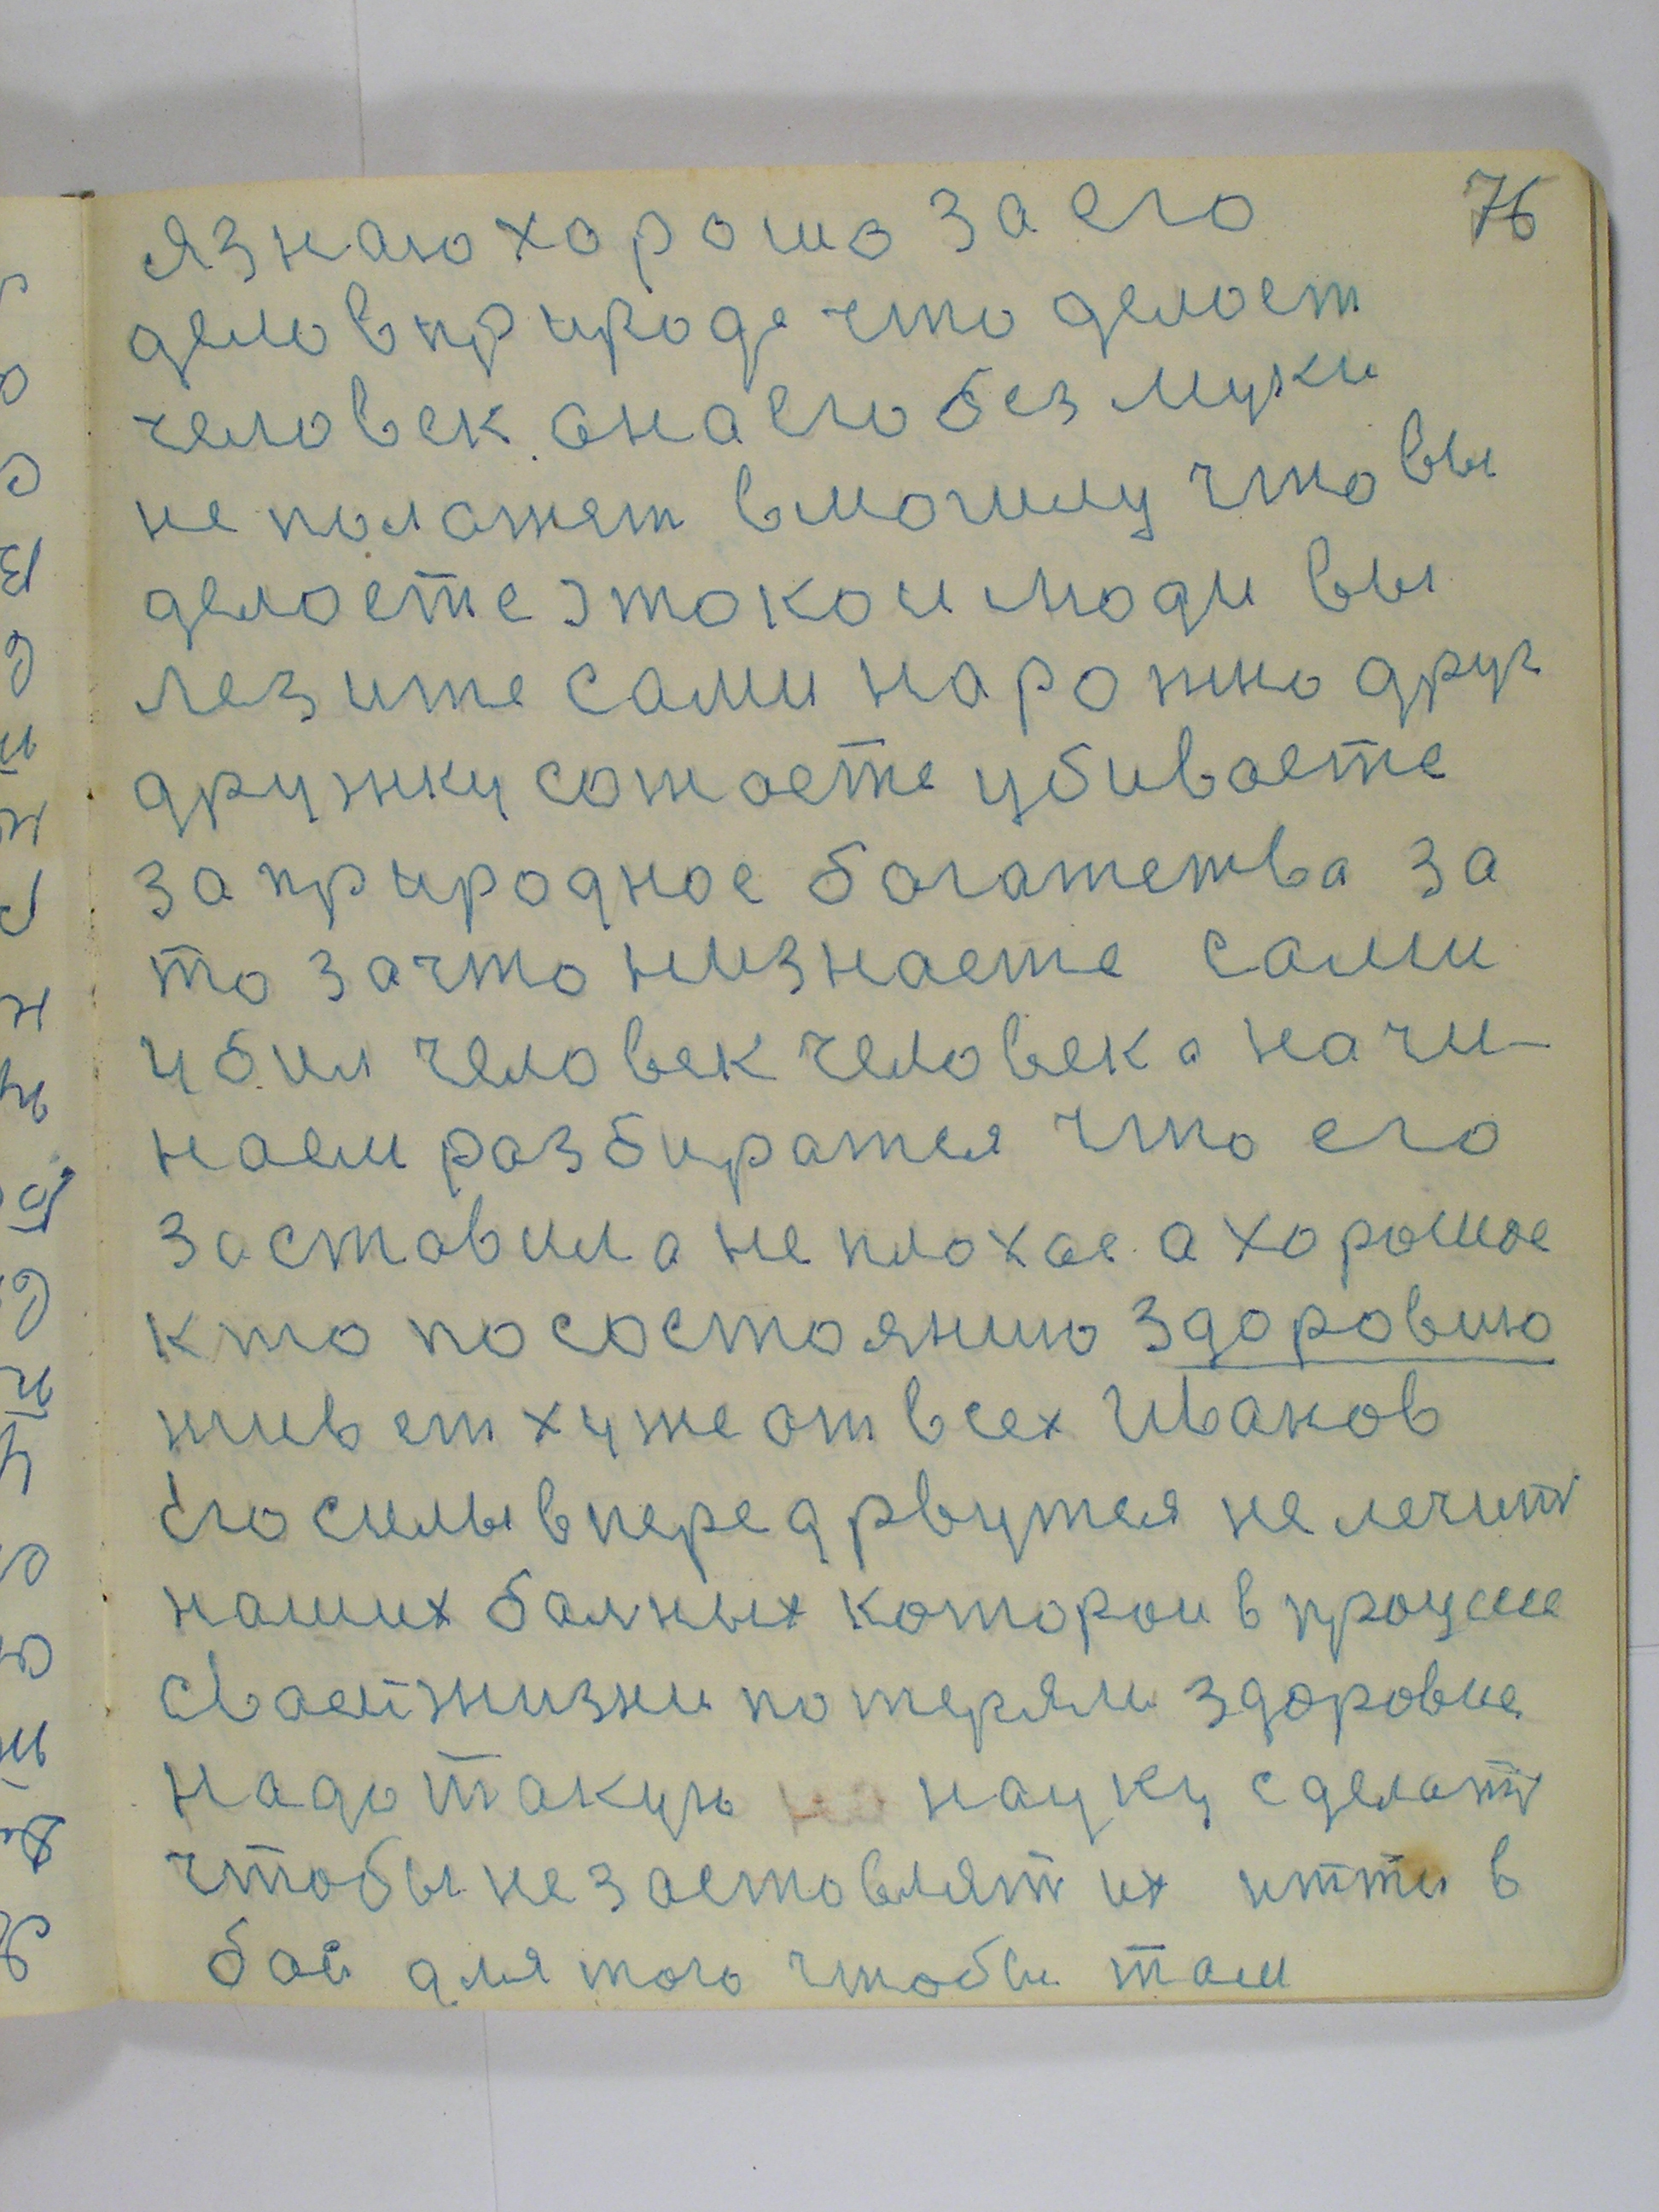 76
я знаю хорошо за его
дело в природе что делоет
человек она его без муки
не положет в могилу что вы
делоете этокои люди вы
лезите сами на рожно друг
дружку сожоете убиваете
за природное богатства за
то за что низнаете сами
убил человек человека начи-
наем разбиратся что его
заставила не плохое а хорошое
кто по состоянию здоровию
живет хуже от всех Иваков
его силы вперед рвутся не лечит
наших болных которои в процесе
своей жизни потеряли здоровие
надо такую науку сделать
чтобы незаставлят их итти в
бой для того чтобы там